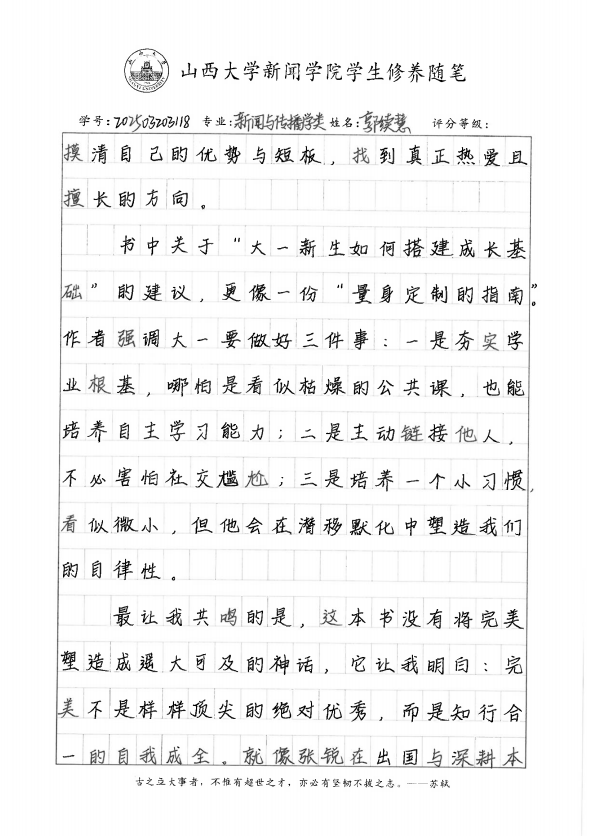 山西大学新闻学院学生修养随笔
学号:202503203118 专业:新闻与传播学类 姓名:郭续慧 评分等级:
摸清自己的优势与短板，找到真正热爱且
擅长的方向。
书中关于“大一新生如何搭建成长基
础”的建议，更像一份“量身定制的指南”。
作者强调大一要做好三件事：一是夯实学
业根基，哪怕是看似枯燥的公共课，也能
培养自主学习能力；二是主动链接他人，
不必害怕社交尴尬；三是培养一个小习惯，
看似微小，但他会在潜移默化中塑造我们
的自律性。
最让我共鸣的是，这本书没有将完美
塑造成遥大可及的神话，它让我明白：完
美不是样样顶尖的绝对优秀，而是知行合
一的自我成全。就像张锐在出国与深耕本
古之立大事者，不惟有超世之才，亦必有坚韧不拔之志。——苏轼